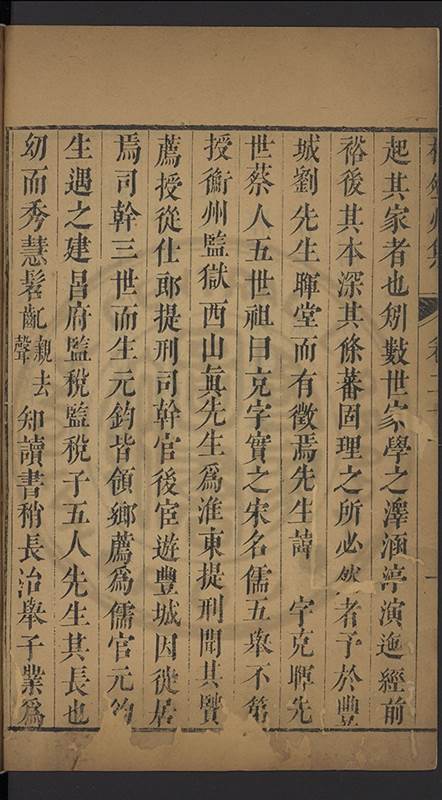 起其家者也矧數世家學之澤涵渟演迤經前
裕後其本深其條蕃固理之所必然者予於豐
城劉先生暉堂而有徵焉先生諱 字克暉先
世蔡人五世祖曰克字實之宋名儒五舉不第
授衡州監獄西山真先生為淮東提刑聞其賢
薦授從仕郎提刑司幹官後宦遊豐城因徙居
焉司幹三世而生元鈞皆領鄉薦為儒官元鈞
生遇之建昌府監稅監稅子五人先生其長也
幼而秀慧髫齓親去聲知讀書稍長治舉子業為